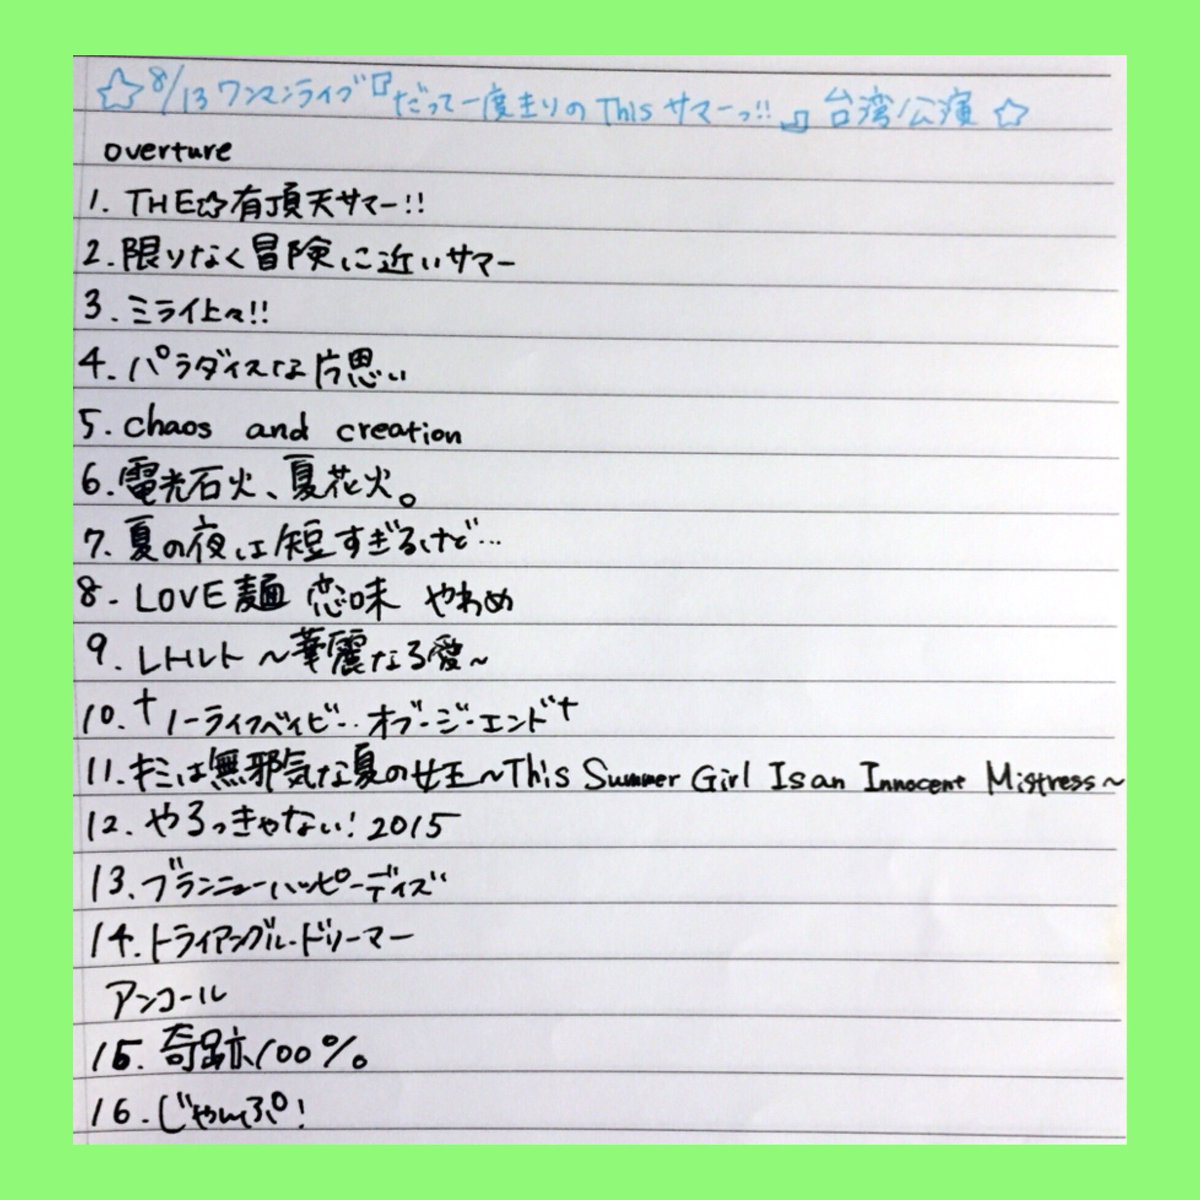 ☆8/13 ワンマンライブ『だって一度きりのThis サマーっ!!』台湾公演☆
overture
1. THE☆有頂天サマー!!
2. 限りなく冒険に近いサマー
3. ミライ上々!!
4. パラダイスな片思い
5. chaos and creation
6. 電光石火、夏花火。
7. 夏の夜は短すぎるけど…
8. LOVE麺 恋味 やわめ
9. レトルト〜華麗なる愛〜
10. †ノーライフベイビー・オブ・ジ・エンド†
11. キミは無邪気な夏の女王〜This Summer Girl Is an Innocent Mistress〜
12. やろっきゃない! 2015
13. ブランニューハッピーデイズ
14. トライアングル・ドリーマー
アンコール
15. 奇跡、100%。
16. じゃんぷ!